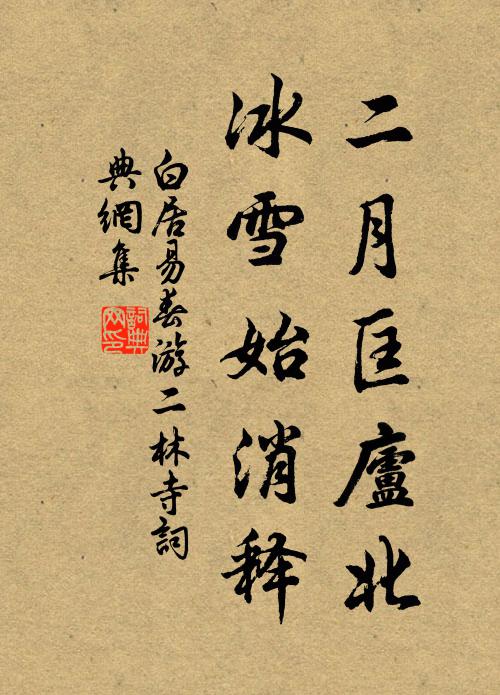 二月匡廬北
冰雪始消释
白居易春游二林寺詞
典網集
詞典网印